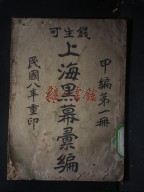 錢生可
上海黑幕彙編
甲編第一冊
民國八年重印